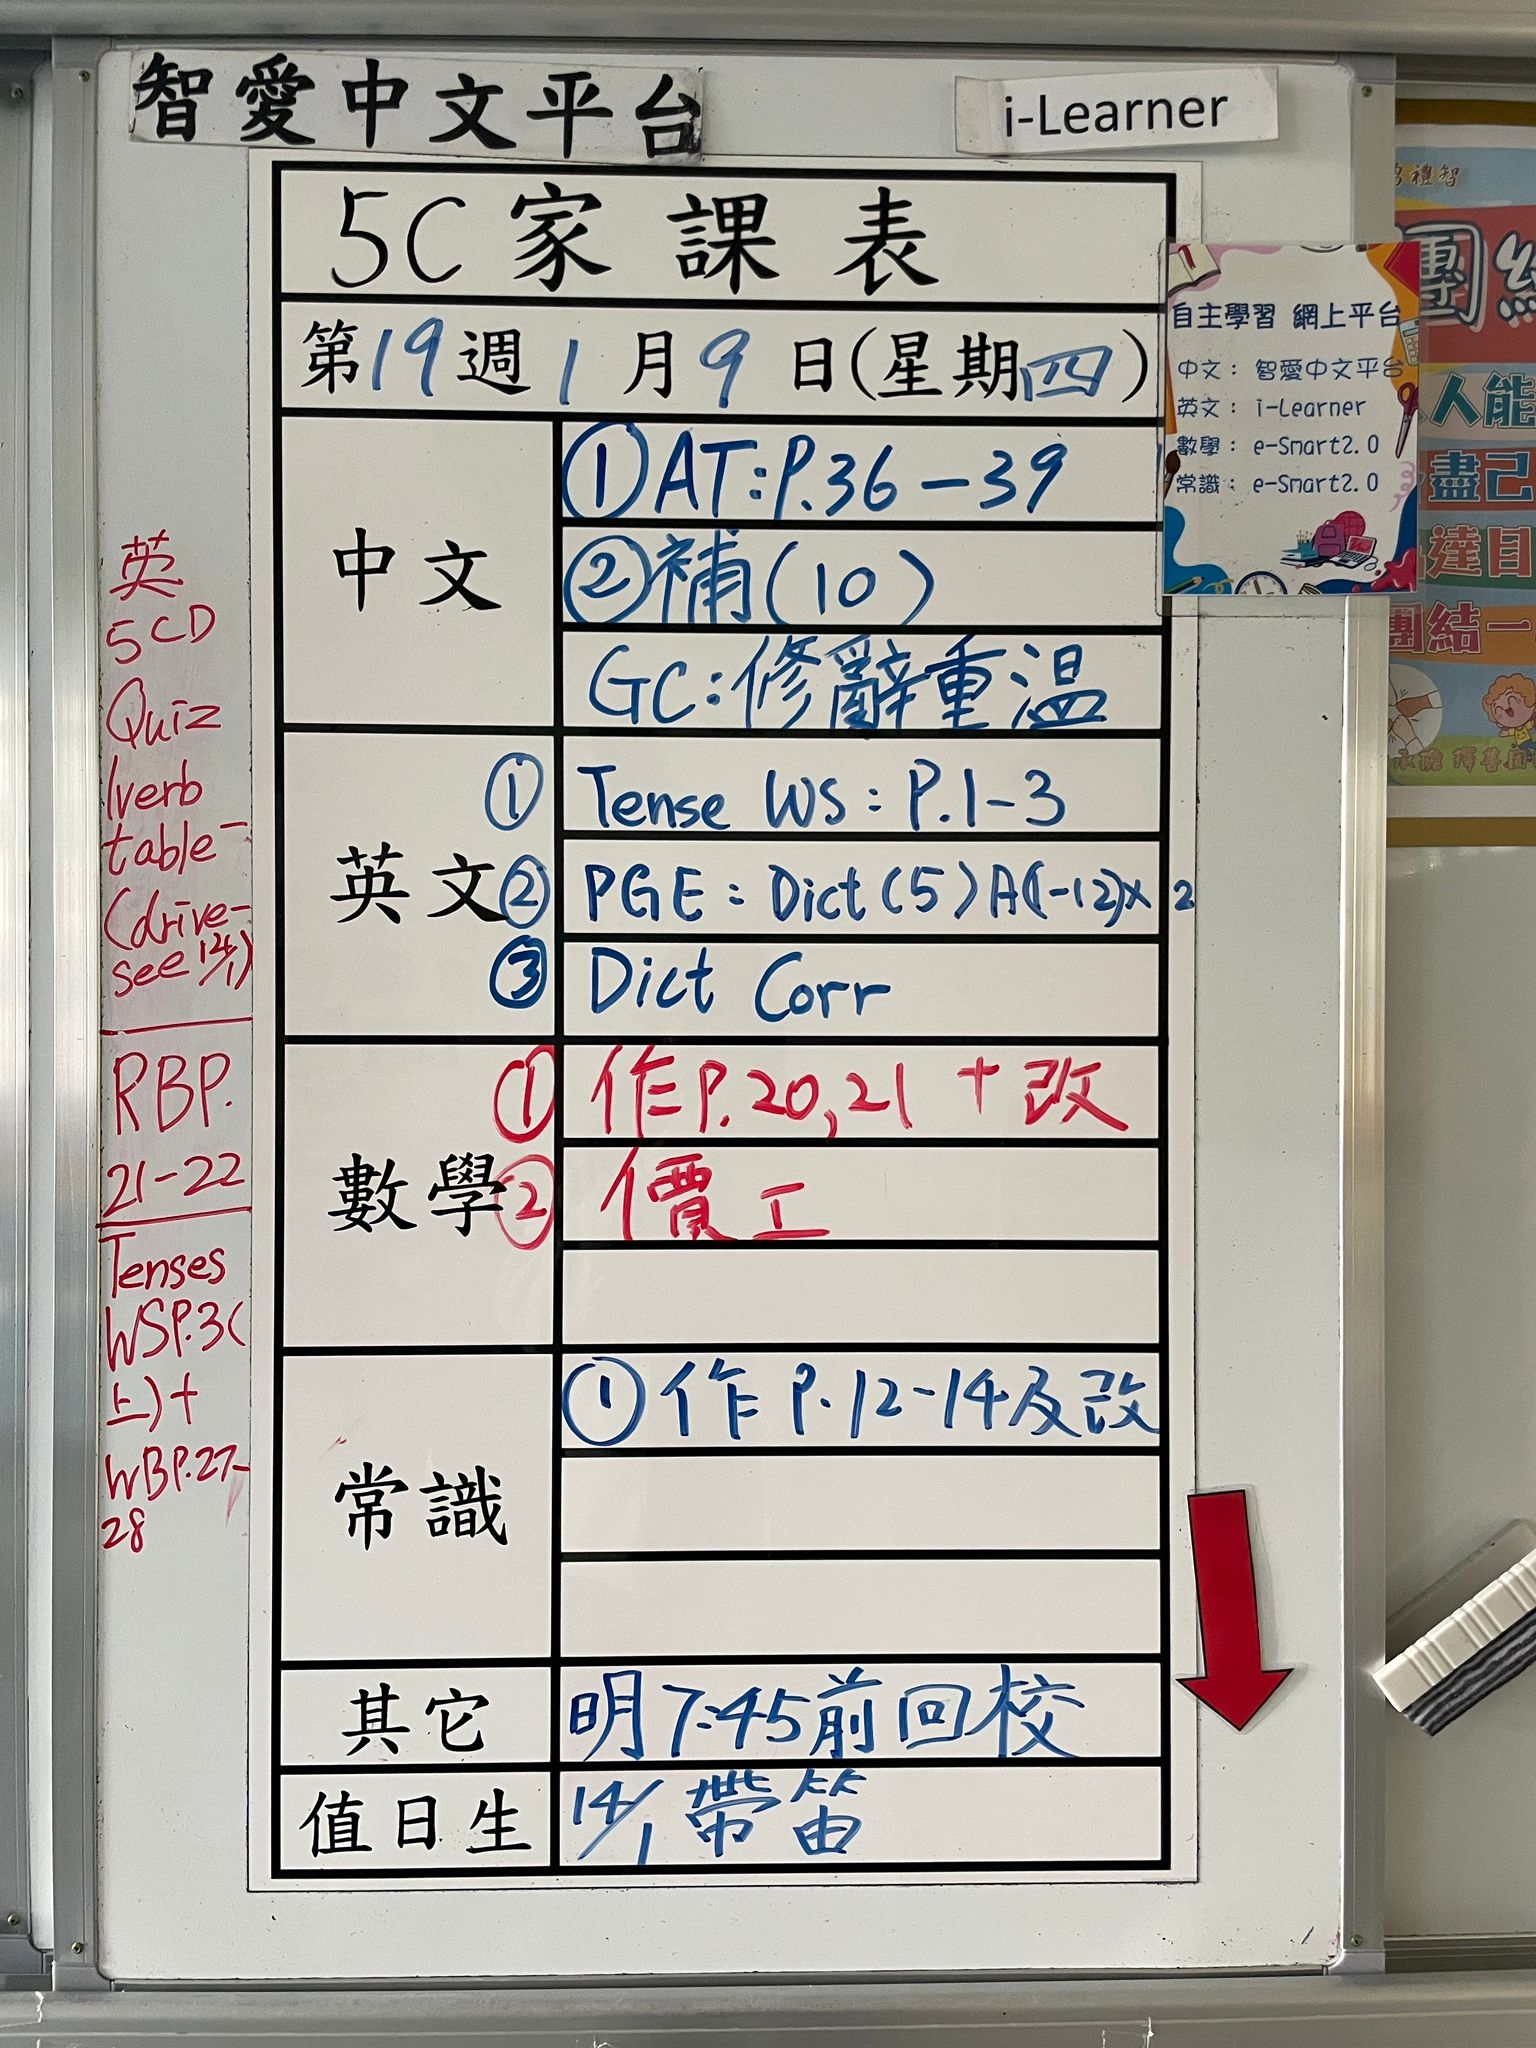 智愛中文平台
i-Learner
5C 家課表
第19週1月9日(星期四)
中文
①AT:P.36-39
②補(10)
GC:修辭重溫
英文
① Tense WS: P.1-3
② PGE: Dict(5)A(1-12)×2
③ Dict Corr
數學
① 作P.20,21+改
② 價工
常識
① 作P.12-14及改
其它
明7:45前回校
值日生
14/1 帶笛
英
5CD
Quiz
verb
table-
(drive-
see 14/1)
RBP.
21-22
Tenses
WSP.3(
上)+
WBP.27-
28
自主學習 網上平台
中文: 智愛中文平台
英文: i-Learner
數學: e-Smart2.0
常識: e-Smart2.0
禮智
團
人能
盡己
達目
團結一